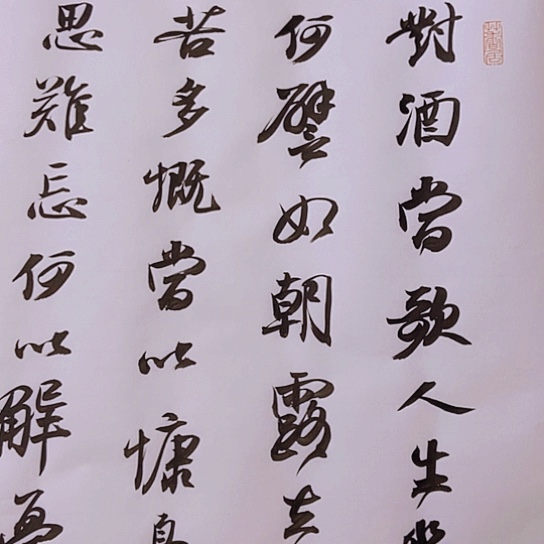 對酒當歌人生
何譬如朝露去
苦多慨當以慷
思難忘何以解